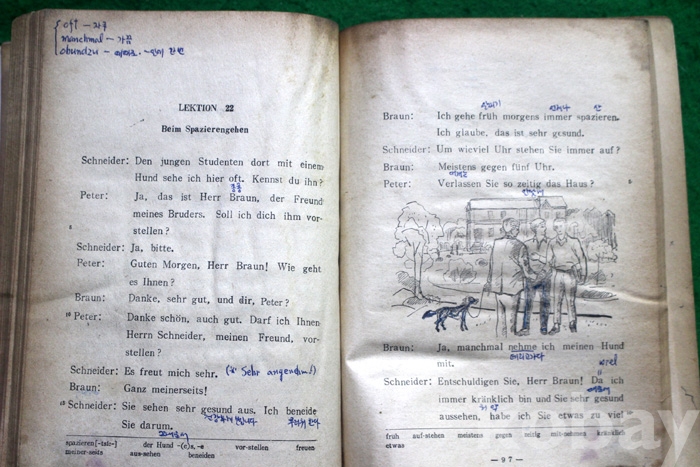 oft - 자주
manchmal - 가끔
abundzu - 때때로.
LEKTION 22
Beim Spazierengehen
Schneider: Den jungen Studenten dort mit einem
Hund sehe ich hier oft. Kennst du ihn?
Peter: Ja, das ist Herr Braun, der Freund
meines Bruders. Soll ich dich ihm vor-
5 stellen?
Schneider: Ja, bitte.
Peter: Guten Morgen, Herr Braun! Wie geht
es Ihnen?
Braun: Danke, sehr gut, und dir, Peter?
10 Peter: Danke schön, auch gut. Darf ich Ihnen
Herrn Schneider, meinen Freund, vor-
stellen?
Schneider: Es freut mich sehr. (Sehr angenehm!)
Braun: Ganz meinerseits!
15 Schneider: Sie sehen sehr gesund aus. Ich beneide
Sie darum.
spazieren[-tsi:-] der Hund -(e)s, -e vor-stellen freuen
meiner-seits aus-sehen beneiden
Braun: Ich gehe früh morgens immer spazieren.
Ich glaube, das ist sehr gesund.
Schneider: Um wieviel Uhr stehen Sie immer auf?
Braun: Meistens gegen fünf Uhr.
Peter: Verlassen Sie so zeitig das Haus? 5
Braun: Ja, manchmal nehme ich meinen Hund
mit.
weil
Schneider: Entschuldigen Sie, Herr Braun! Da ich
immer kränklich bin und Sie sehr gesund
aussehen, habe ich Sie etwas zu viel
früh auf-stehen meistens gegen zeitig mit-nehmen kränklich
etwas
— 97 —